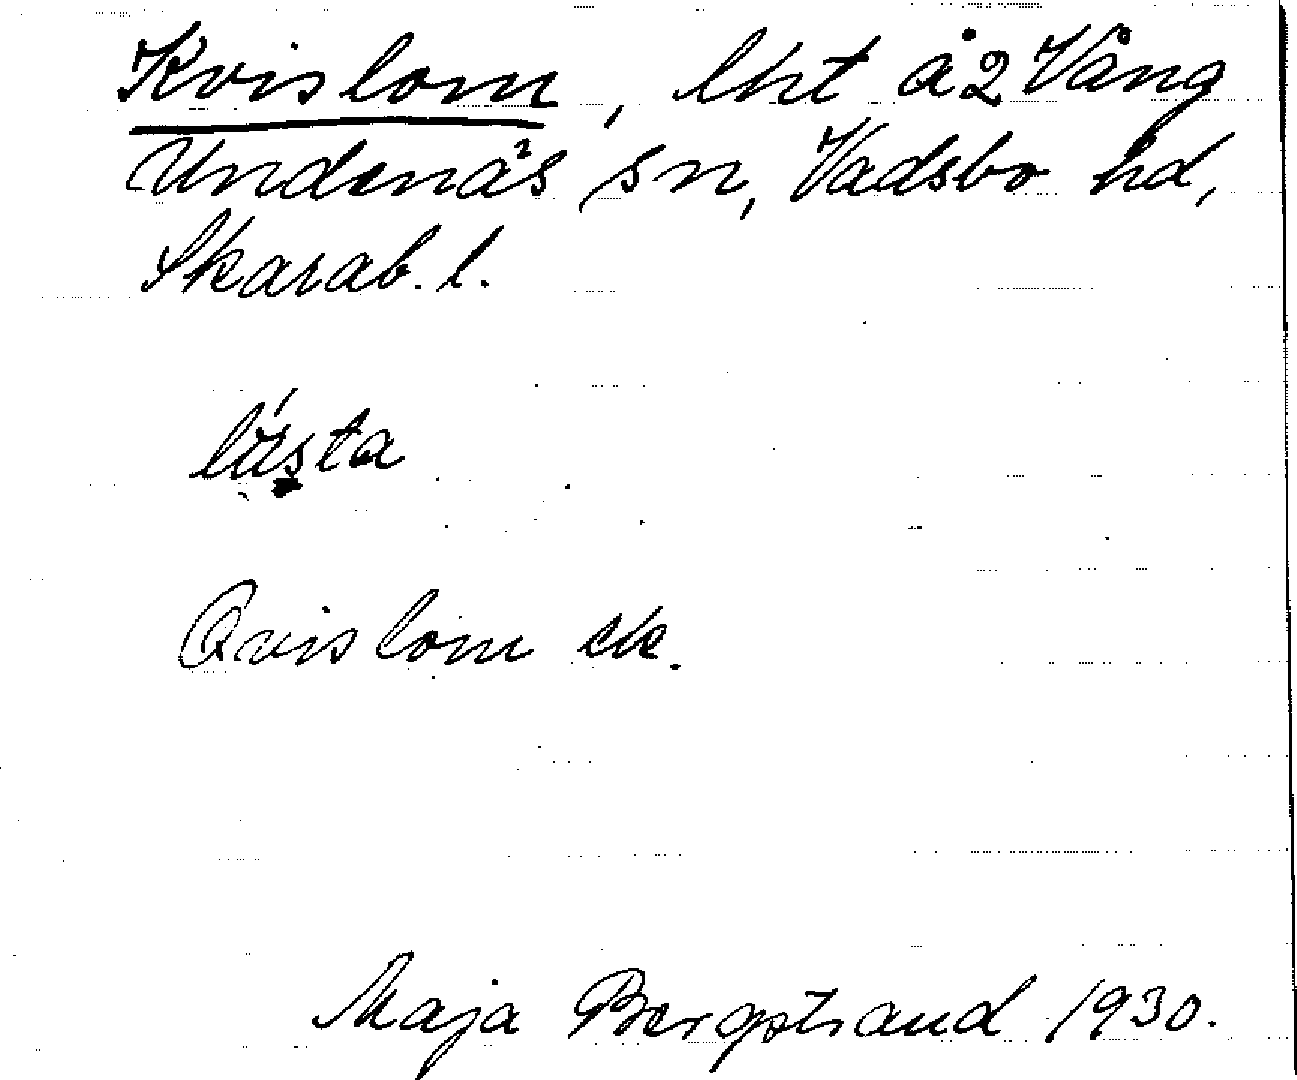 Kvislom, lht å 2 Vång
Undenäs sn, Vadsbo hd,
Skarab. l.
Qvislom ek.
Maja Bergstrand 1930.